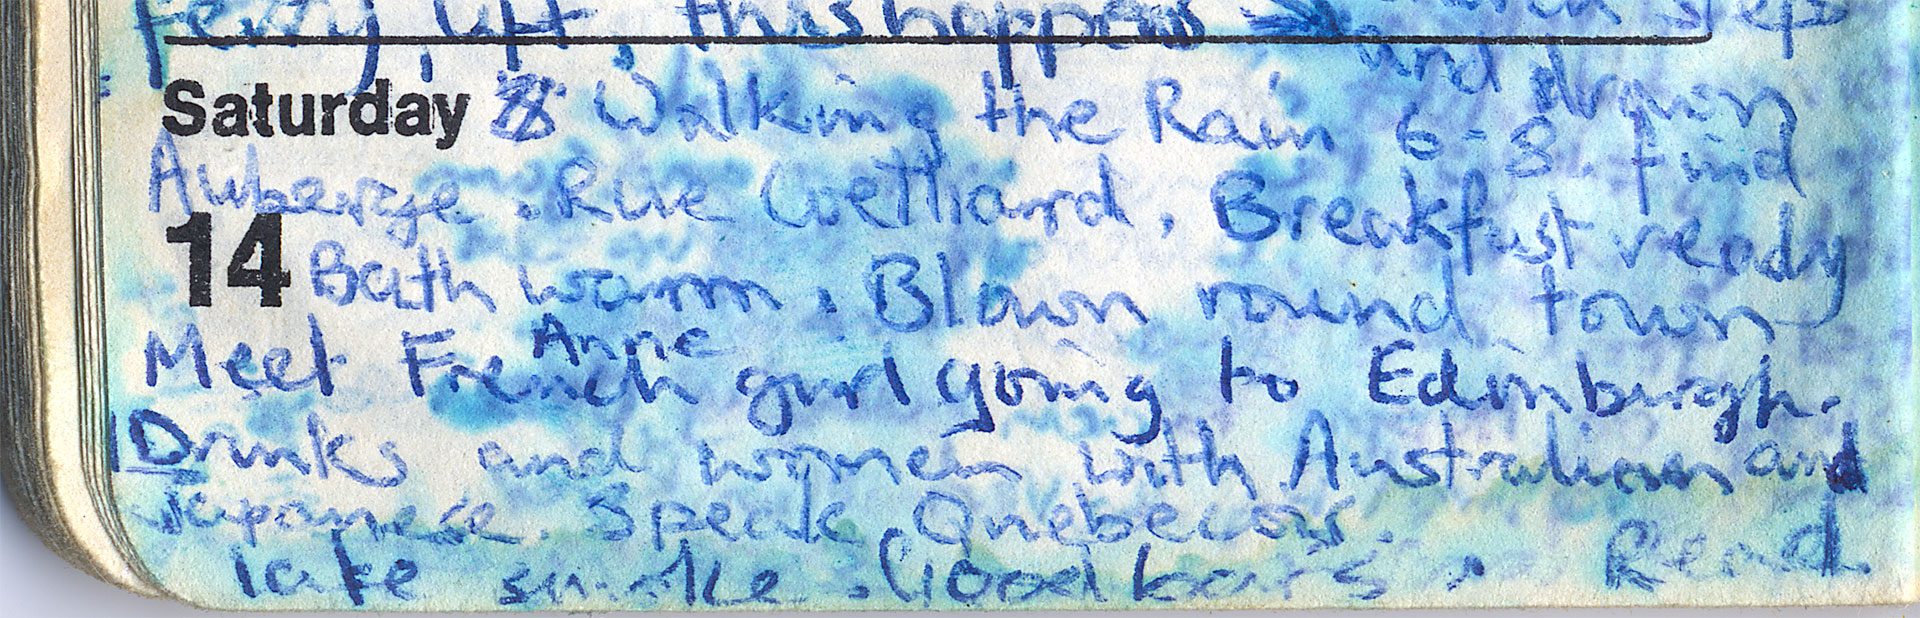 Ferry, lift, this happens
and drawn
Saturday 8 Walking the Rain 6-8. find
Auberge. Rue Coetlhard, Breakfast ready
14 Bath warm. Blown round town
Meet French Anne girl going to Edinburgh.
Drinks and women with Australian and
Japanese. Speak Quebecois.
late smoke. Good bars. Read